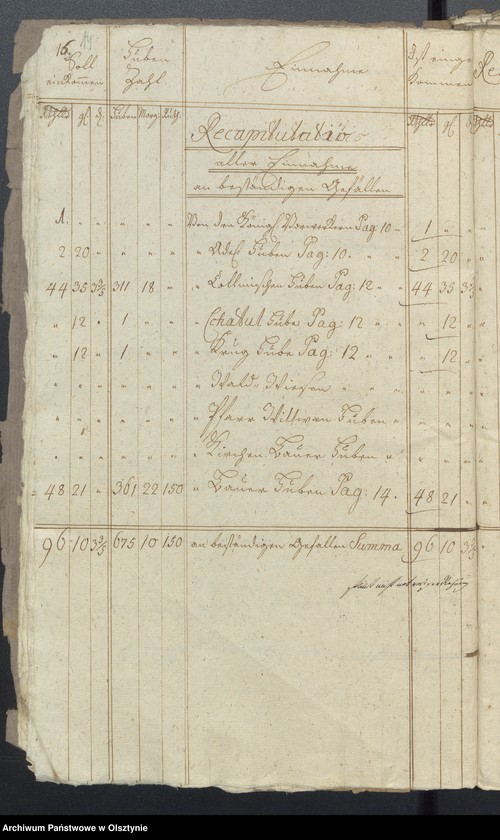 16.
Soll einkommen | Huben Zahl | Einnahme | Ist einge kommen
Rthlr | gl | ₰ | Huben | Morg: | Ruth: | Rthlr | gl | ₰
Recapitulatio
aller Einnahme
an beständigen Gefällen
1. " " " " " Von den Königl. Vorwerkern Pag 10 1 " "
2 20 " " " " " Adel. Huben Pag: 10. 2 20 "
44 35 3 3/5 311 18 " " Cöllmischen Huben Pag: 12 44 35 3 3/5
" 12 " 1 " " Schatul Hube Pag: 12 " 12
" 12 " 1 " " " Krug Hube Pag: 12 " 12
" " " " " " " Wald-Wiesen " " "
" " " " " " " Pfarr Wittwen Huben " " "
" " " " " " " Kirchen Bauer Huben " " "
48 21 " 361 22 150 " Bauer Huben Pag: 14. 48 21 "
96 10 3 3/5 675 10 150 an beständigen Gefällen Summa 96 10 3 3/5
Archiwum Państwowe w Olsztynie